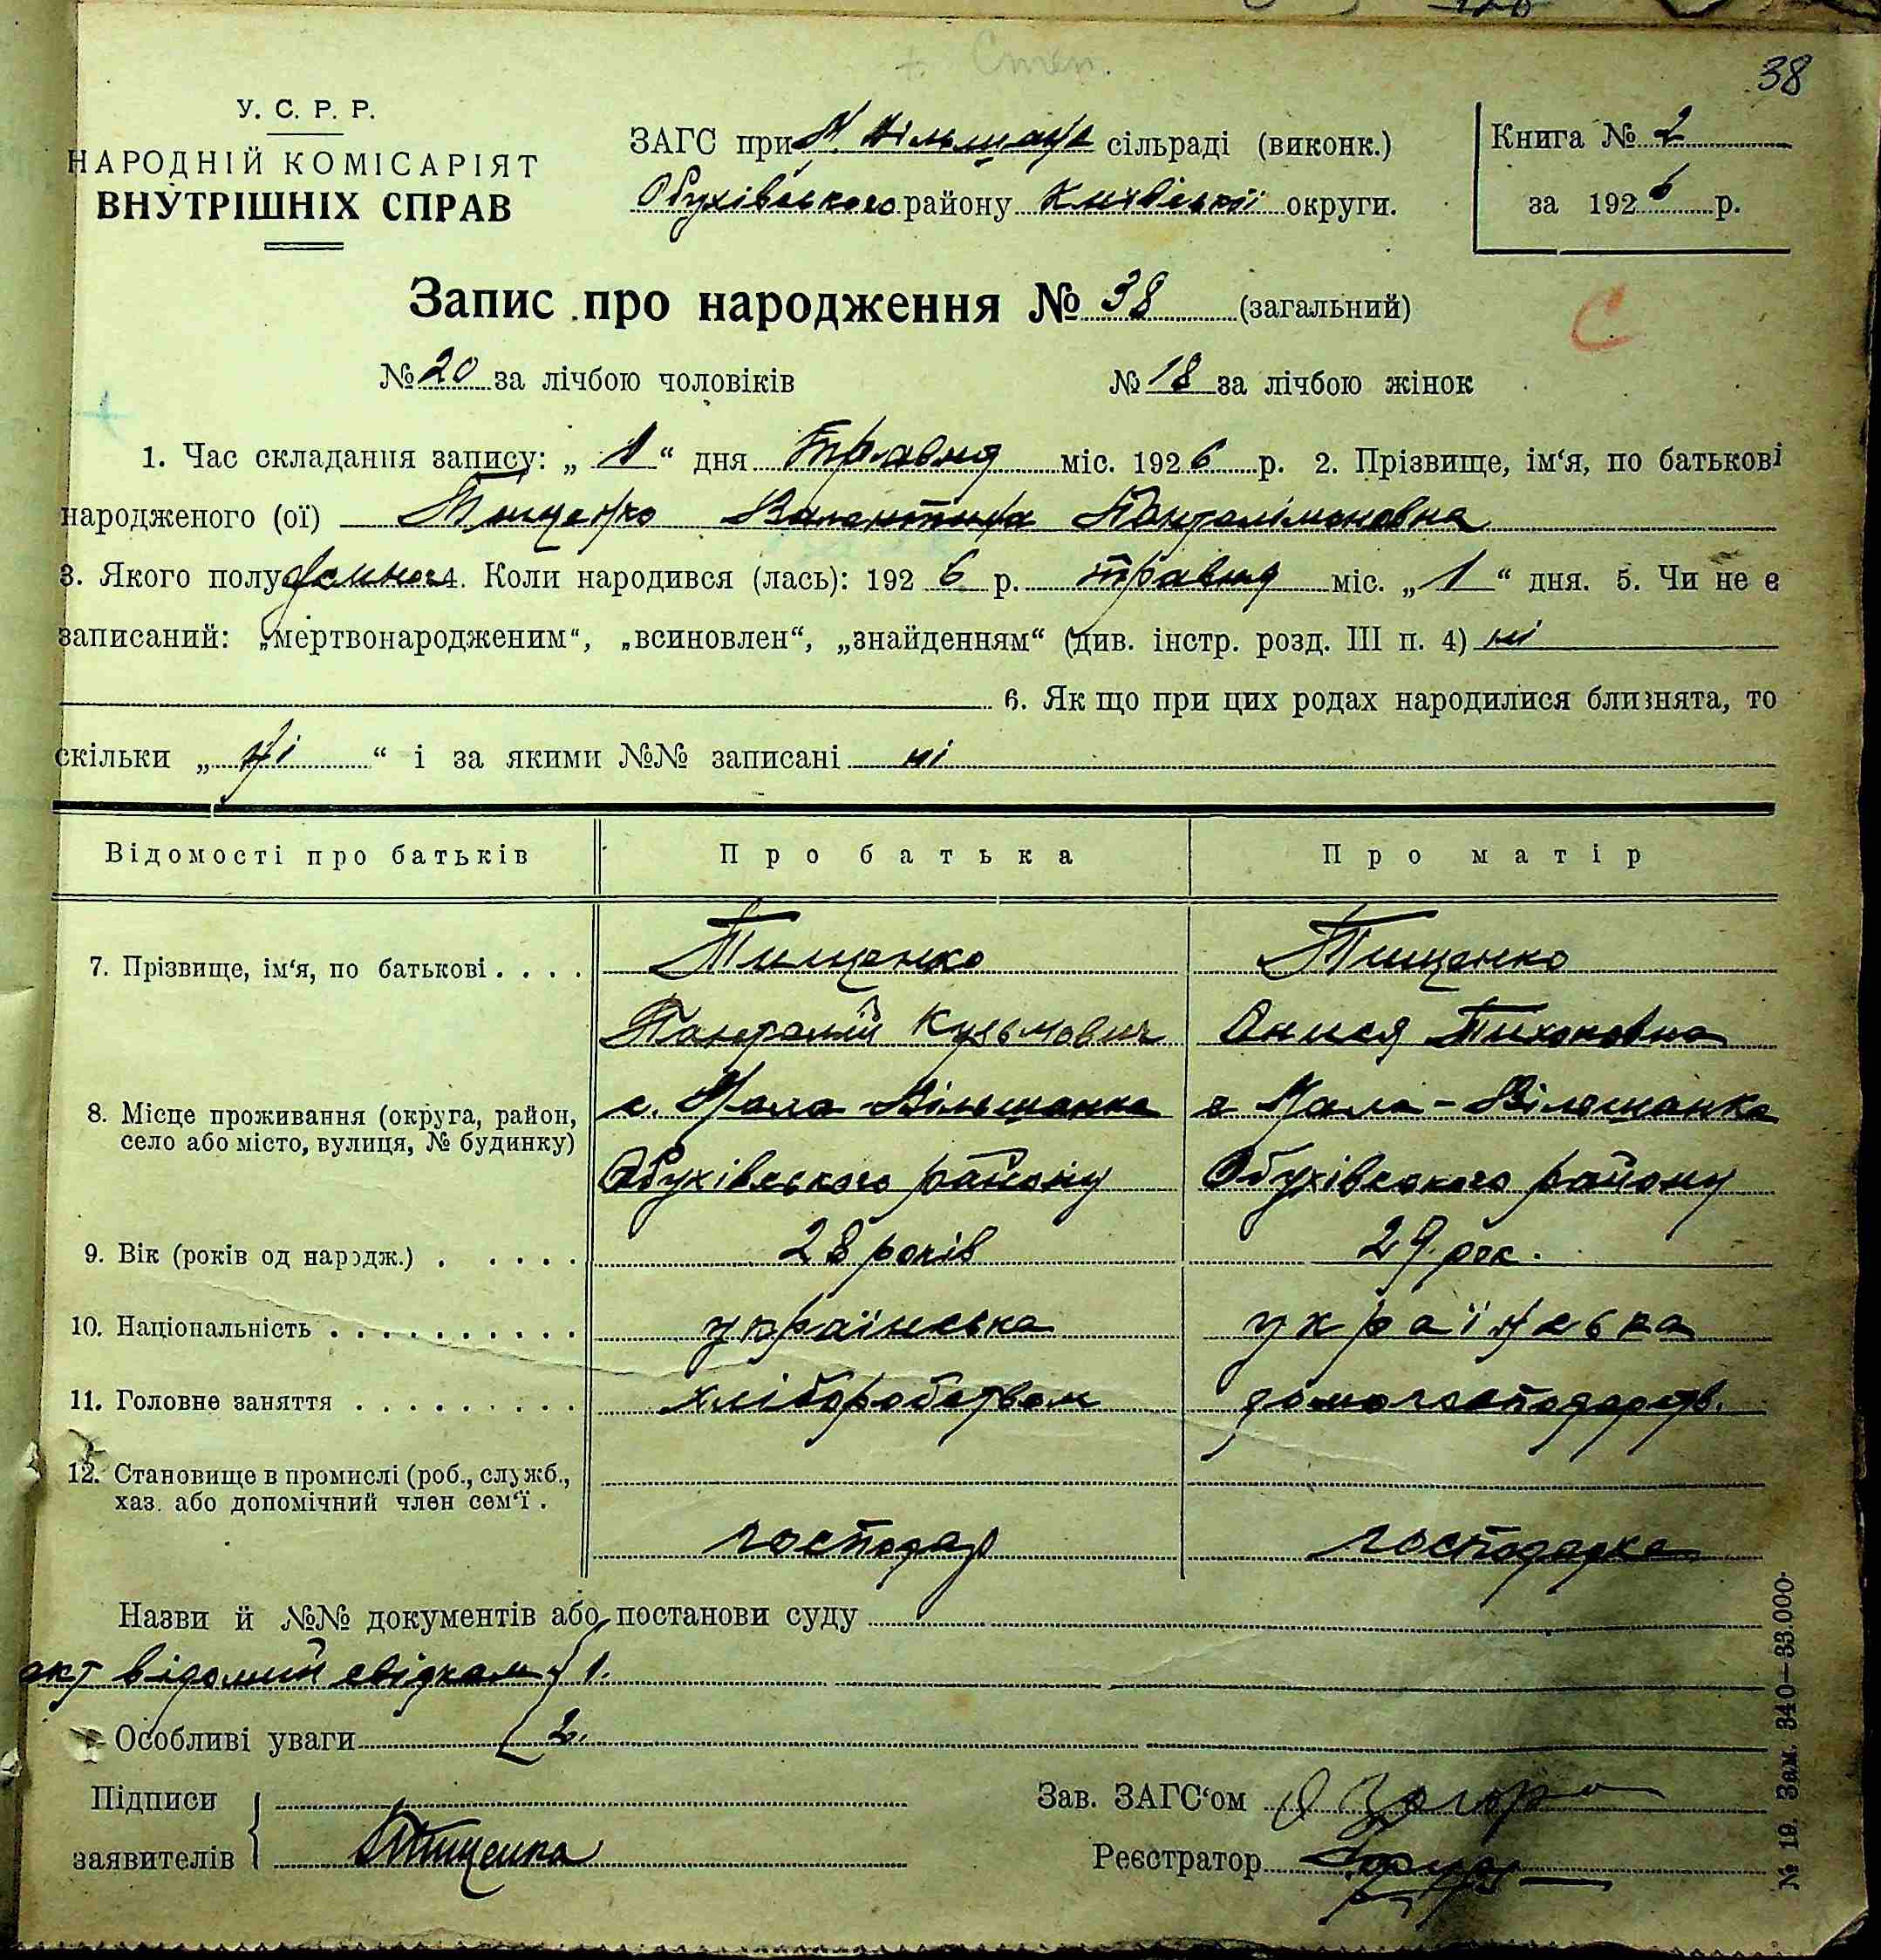 + Степ.
38
У. С. Р. Р.
НАРОДНІЙ КОМІСАРІЯТ
ВНУТРІШНІХ СПРАВ
ЗАГС при М. Вільшанк сільраді (виконк.)
Обухівського району Київської округи.
Книга № 2
за 1926 р.
Запис про народження № 38 (загальний)
С
№ 20 за лічбою чоловіків № 18 за лічбою жінок
1. Час складання запису: „ 1 “ дня Травня міс. 1926 р. 2. Прізвище, ім‘я, по батькові
народженого (ої) Тищенко Валентина Пантелімоновна
3. Якого полу жіноч 4. Коли народився (лась): 192 6 р. травня міс. „ 1 “ дня. 5. Чи не є
записаний: „мертвонародженим“, „всиновлен“, „знайденням“ (див. інстр. розд. III п. 4) ні
6. Як що при цих родах народилися близнята, то
скільки „ ні “ і за якими №№ записані ні
Відомості про батьків Про батька Про матір
7. Прізвище, ім‘я, по батькові . . . . Тищенко Тищенко
Кузьмович Онися Тихоновна
8. Місце проживання (округа, район, с. Мала-Вільшанка с Мала-Вільшанка
село або місто, вулиця, № будинку)
Обухівського району Обухівського району
9. Вік (років од народж.) . . . . . 28 років 29 рок.
10. Національність . . . . . . . . . . українська українська
11. Головне заняття . . . . . . . . . хліборобством домогосподарств.
12. Становище в промислі (роб., служб.,
хаз. або допомічний член сем‘ї .
господар господарка
Назви й №№ документів або постанови суду
акт відомий свідкам { 1.
Особливі уваги 2.
Підписи
заявителів Тищенко
Зав. ЗАГС‘ом
Реєстратор
№ 19. Зам. 340—33.000.